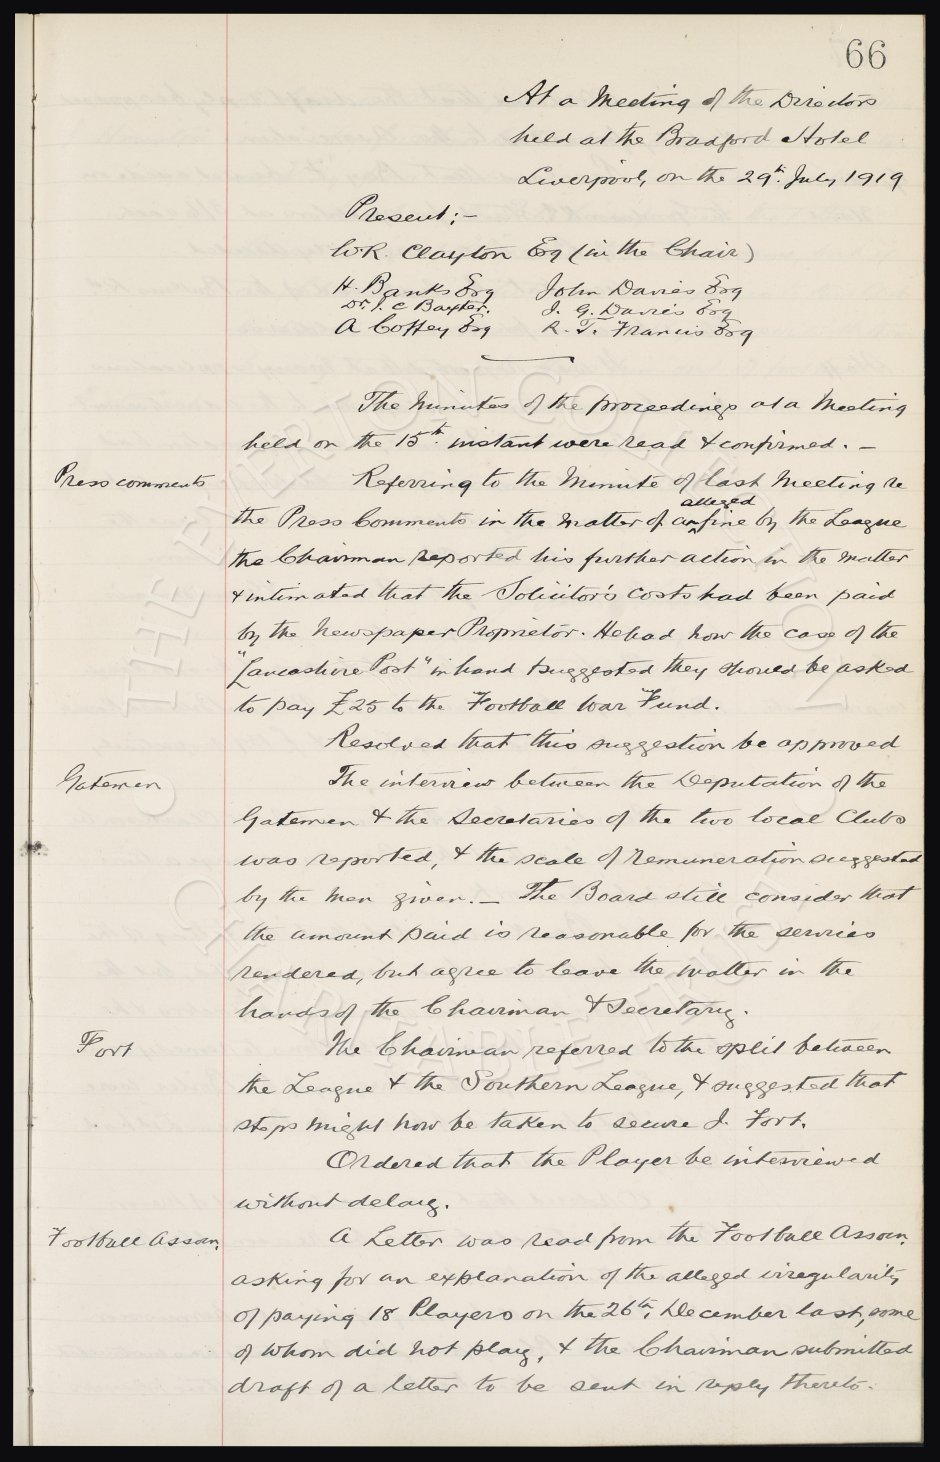 66
At a Meeting of the Directors
held at the Bradford Hotel
Liverpool, on the 29th. July 1919
Present:-
W.R. Clayton Esq (in the Chair)
H. Banks Esq John Davies Esq
Dr. J. C Baxter. J. G. Davies Esq
A Coffey Esq R. T. Francis Esq
The Minutes of the proceedings at a Meeting
held on the 15th. instant were read & confirmed. -
Press comments Referring to the Minute of last Meeting re
alleged
the Press Comments in the matter of an fine by the League
the Chairman reported his further action in the matter
& intimated that the Solicitor's costs had been paid
by the Newspaper Proprietor. He had now the case of the
"Lancashire Post" in hand & suggested they should be asked
to pay £25 to the Football War Fund.
Resolved that this suggestion be approved
Gatemen The interview between the Deputation of the
Gatemen & the Secretaries of the two local Clubs
was reported, & the scale of remuneration suggested
by the men given. - The Board still consider that
the amount paid is reasonable for the services
rendered, but agree to leave the matter in the
hands of the Chairman & Secretary.
Fort The Chairman referred to the split between
the League & the Southern League, & suggested that
steps might now be taken to secure J. Fort.
Ordered that the Player be interviewed
without delay.
Football Assocn. A Letter was read from the Football Assocn.
asking for an explanation of the alleged irregularity
of paying 18 Players on the 26th. December last, some
of whom did not play, & the Chairman submitted
draft of a letter to be sent in reply thereto.
THE EVERTON COLLECTION